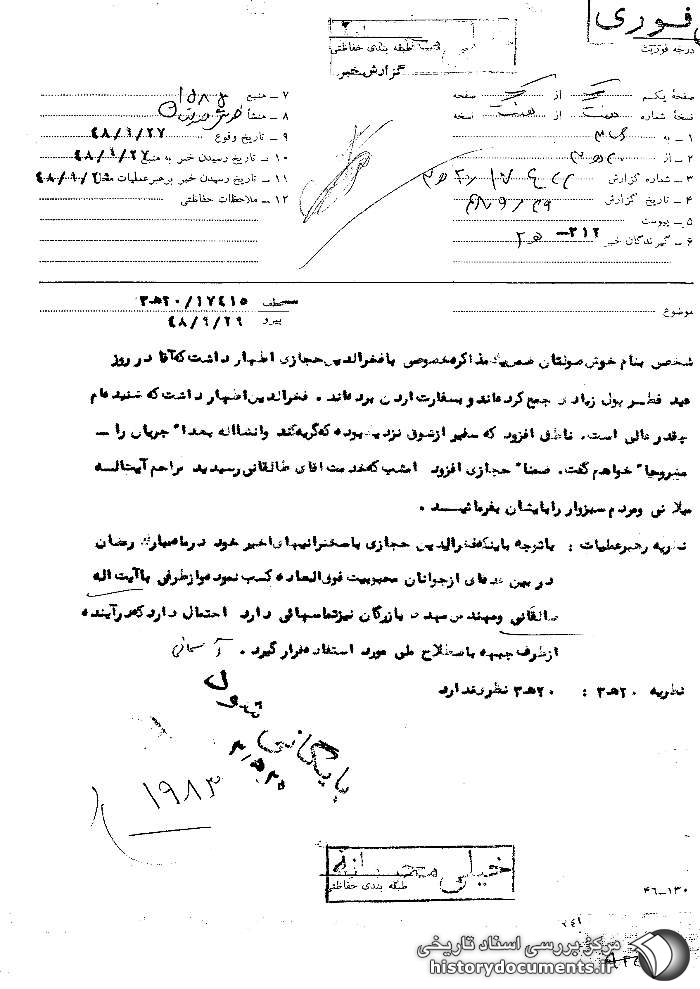 فوری
درجه فوریت
طبقه بندی حفاظتی
گزارش خبر
صفحهٔ یکم از یک صفحه
نسخهٔ شماره هفت از هفت نسخه
۱ ـ به
۲ ـ از ۲۰ ه‍ ۳
۳ ـ شماره گزارش
۴ ـ تاریخ گزارش ۴۸/۹/۲۹
۵ ـ پیوست
۶ ـ گیرندگان خبر ۳۱۲ ـ
۷ ـ منبع
۸ ـ منشأ
۹ ـ تاریخ وقوع ۴۸/۹/۲۷
۱۰ ـ تاریخ رسیدن خبر به منبع ۴۸/۹/۲۷
۱۱ ـ تاریخ رسیدن خبر برهبر عملیات ۴۸/۹/۲۹
۱۲ ـ ملاحظات حفاظتی
موضوع
۲۰/۱۷۴۱۵ه‍۳
پیرو ۴۸/۹/۲۹
شخصی بنام خوش صولتان ضمن یک مذاکره خصوصی با فخرالدین حجازی اظهار داشت که آقا در روز
عید فطر پول زیادی جمع کرده‌اند و بسفارت اردن برده‌اند . فخرالدین اظهار داشت که شنیده‌ام
چقدر عالی است . ناطقی افزود که سفیر از شوق نزدیک بوده که گریه کند وانشااله بعدا" جریان را ـ
مشروحا" خواهم گفت . ضمنا" حجازی افزود امشب که خدمت آقای طالقانی رسیدید مراحم آیت‌اله
میلانی ومردم سبزوار را بایشان بفرمائید .
نظریه رهبرعملیات : باتوجه باینکه فخرالدین حجازی باسخنرانیهای اخیر خود در ماه مبارک رمضان
در بین عده‌ای از جوانان محبوبیت فوق‌العاده کسب نموده و از طرفی با آیت اله
طالقانی ومهندس مهدی بازرگان نیز تماسهائی دارد احتمال دارد که در آینده
از طرف جبهه باصطلاح ملی مورد استفاده قرار گیرد . آسمانی
نظریه ۲۰ه‍۳ : ۲۰ه‍۳ نظری ندارد
بایگانی شود
۱۹۸۳
خیلی محرمانه
طبقه بندی حفاظتی
۴۶ــ۱۳۰
۲۴۱
مرکز بررسی اسناد تاریخی
historydocuments.ir